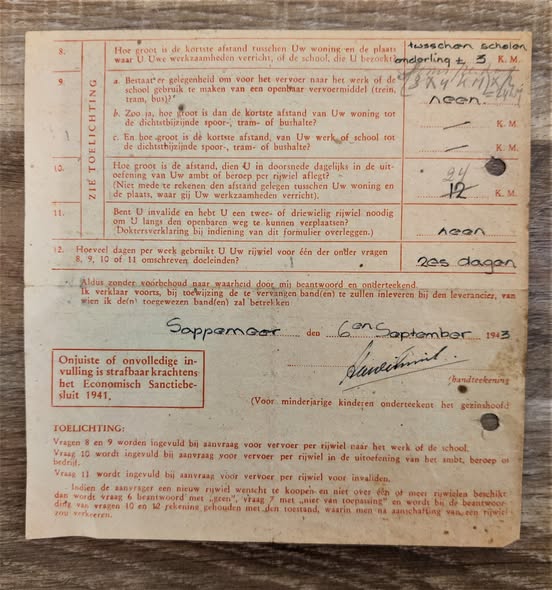 8. Hoe groot is de kortste afstand tusschen Uw woning en de plaats tusschen scholen
waar U Uwe werkzaamheden verricht, of de school, die U bezoekt? onderling ± 3 K. M.
9. a. Bestaat er gelegenheid om voor het vervoer naar het werk of de
school gebruik te maken van een openbaar vervoermiddel (trein,
tram, bus)? neen.
b. Zoo ja, hoe groot is dan de kortste afstand van Uw woning tot
de dichtstbijzijnde spoor-, tram- of bushalte? — K. M.
c. En hoe groot is de kortste afstand, van Uw werk of school tot
de dichtstbijzijnde spoor-, tram- of bushalte? — K. M.
ZIE TOELICHTING
10. Hoe groot is de afstand, dien U in doorsnede dagelijks in de uit-
oefening van Uw ambt of beroep per rijwiel aflegt? 24
(Niet mede te rekenen den afstand gelegen tusschen Uw woning en 12
de plaats, waar gij Uw werkzaamheden verricht). K. M.
11. Bent U invalide en hebt U een twee- of driewielig rijwiel noodig
om U langs den openbaren weg te kunnen verplaatsen?
(Doktersverklaring bij indiening van dit formulier overleggen.) neen
12. Hoeveel dagen per werk gebruikt U Uw rijwiel voor één der onder vragen
8, 9, 10 of 11 omschreven doeleinden? zes dagen
Aldus zonder voorbehoud naar waarheid door mij beantwoord en onderteekend.
Ik verklaar voorts, bij toewijzing de te vervangen band(en) te zullen inleveren bij den leverancier, van
wien ik de(n) toegewezen band(en) zal betrekken
Sappemeer den 6en September 1943
(handteekening
Onjuiste of onvolledige in-
vulling is strafbaar krachtens
het Economisch Sanctiebe-
sluit 1941.
(Voor minderjarige kinderen onderteekent het gezinshoofd
TOELICHTING:
Vragen 8 en 9 worden ingevuld bij aanvraag voor vervoer per rijwiel naar het werk of de school.
Vraag 10 wordt ingevuld bij aanvraag voor vervoer per rijwiel in de uitoefening van het ambt, beroep of
bedrijf.
Vraag 11 wordt ingevuld bij aanvraag voor vervoer per rijwiel voor invaliden.
Indien de aanvrager een nieuw rijwiel wenscht te koopen en niet over één of meer rijwielen beschikt
dan wordt vraag 6 beantwoord met „geen", vraag 7 met „niet van toepassing" en wordt bij de beantwoor-
ding van vragen 10 en 12 rekening gehouden met den toestand, waarin men na aanschaffing van een rijwiel
zou verkeeren.